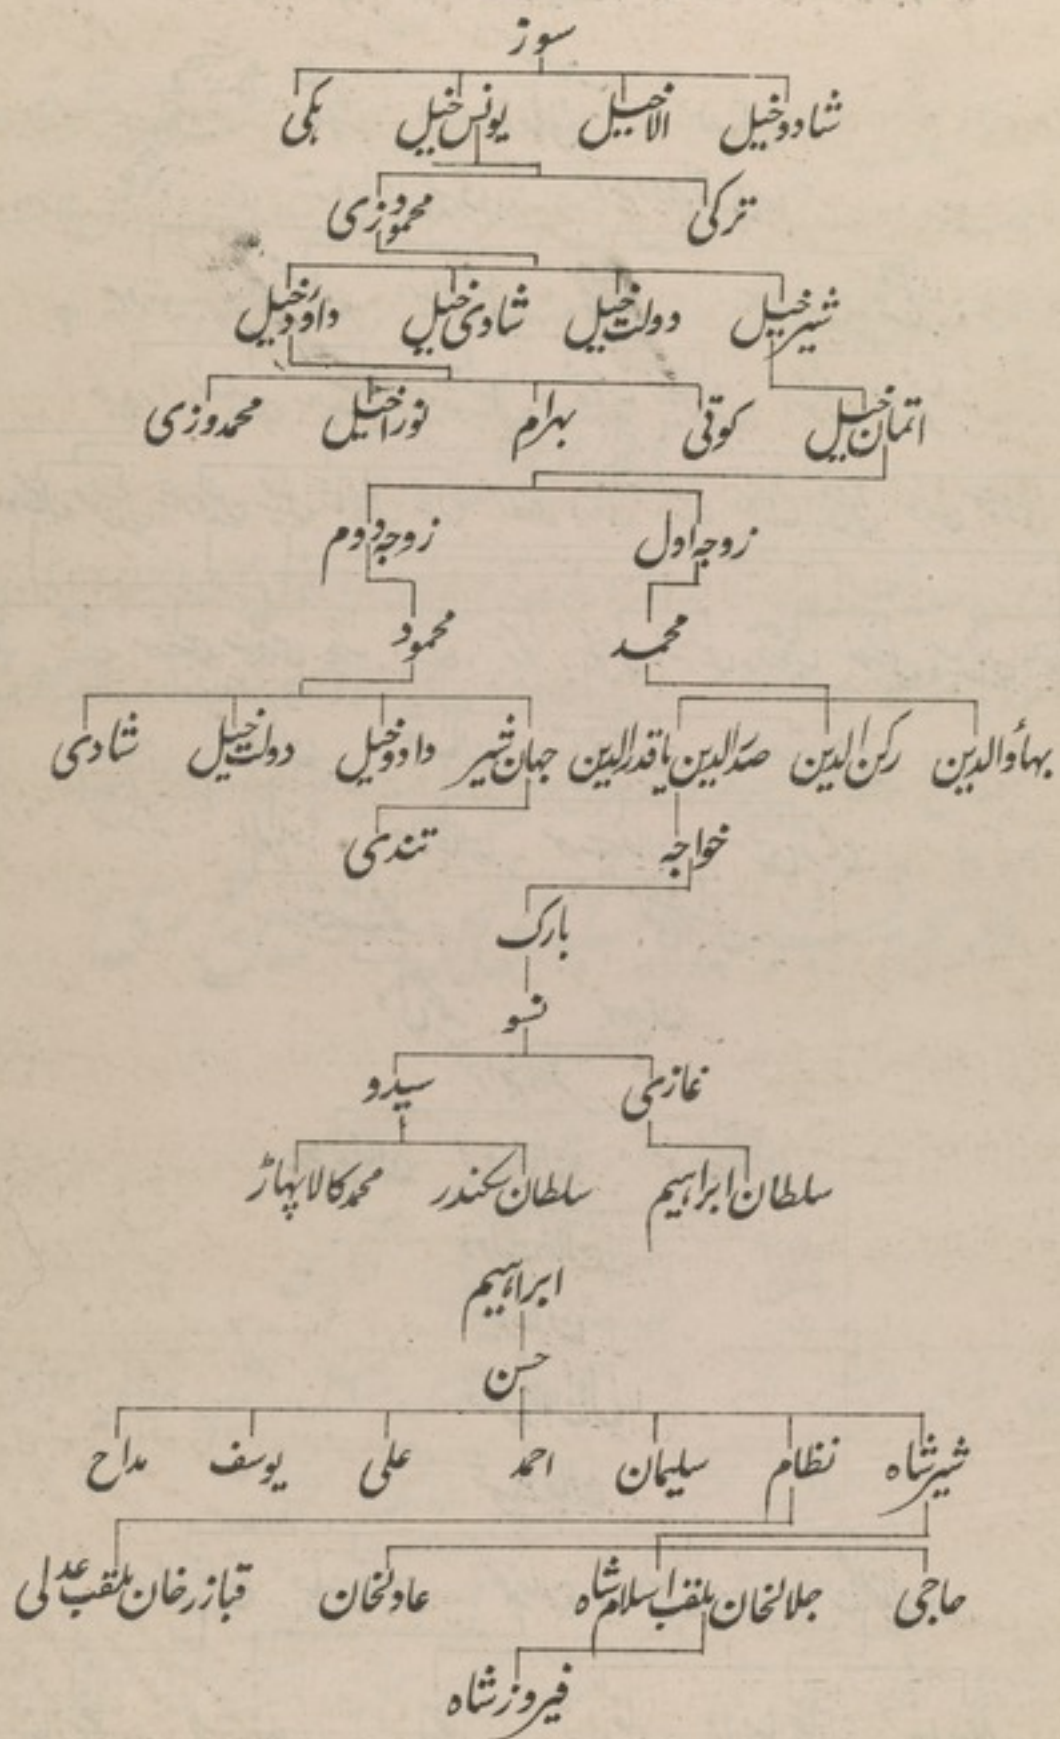 سوز
شادوخیل الاخیل یونس خیل مکی
ترکی محمودزی
شیرخیل دولت خیل شادی خیل داودخیل
اتمان خیل کوتی بہرام نوراخیل محمدوزی
زوجہ اول زوجہ دوم
محمد محمود
بہاؤالدین رکن الدین صدرالدین یا قدرالدین جہان شیر دادوخیل دولت خیل شادی
خواجہ تندی
بارک
نسو
غازی سیدو
سلطان ابراہیم سلطان سکندر محمد کالا پہاڑ
ابراہیم
حسن
شیرشاہ نظام سلیمان احمد علی یوسف مداح
حاجی جلالخان بلقب اسلام شاہ عادلخان قبازرخان بلقب عدلی
فیروزشاہ